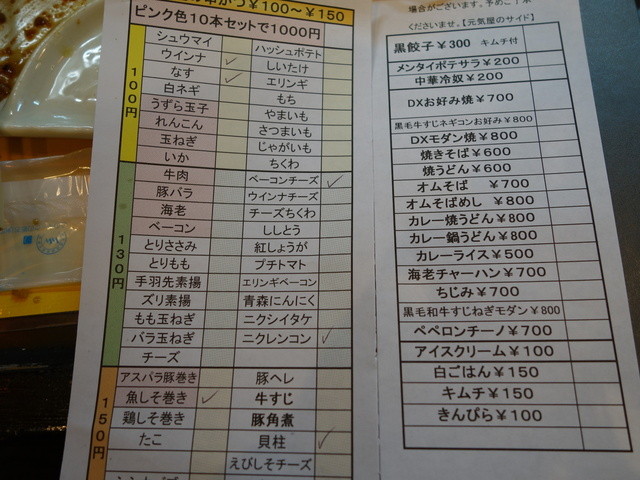 かつ￥100～￥150
ピンク色10本セットで1000円
100円
シュウマイ ハッシュポテト
ウインナ しいたけ
なす エリンギ
白ネギ もち
うずら玉子 やまいも
れんこん さつまいも
玉ねぎ じゃがいも
いか ちくわ
130円
牛肉 ベーコンチーズ
豚バラ ウインナチーズ
海老 チーズちくわ
ベーコン ししとう
とりささみ 紅しょうが
とりもも プチトマト
手羽先素揚 エリンギベーコン
ズリ素揚 青森にんにく
もも玉ねぎ ニクシイタケ
バラ玉ねぎ ニクレンコン
チーズ
150円
アスパラ豚巻き 豚ヘレ
魚しそ巻き 牛すじ
鶏しそ巻き 豚角煮
たこ 貝柱
えびしそチーズ
場合がございます。予めご了承
くださいませ。【元気屋のサイド】
黒餃子￥300 キムチ付
メンタイポテサラ￥200
中華冷奴￥200
DXお好み焼￥700
黒毛牛すじネギコンお好み￥800
DXモダン焼￥800
焼きそば￥600
焼うどん￥600
オムそば ￥700
オムそばめし ￥800
カレー焼うどん￥800
カレー鍋うどん￥800
カレーライス￥500
海老チャーハン￥700
ちじみ￥700
黒毛和牛すじねぎモダン￥800
ペペロンチーノ￥700
アイスクリーム￥100
白ごはん￥150
キムチ￥150
きんぴら￥100